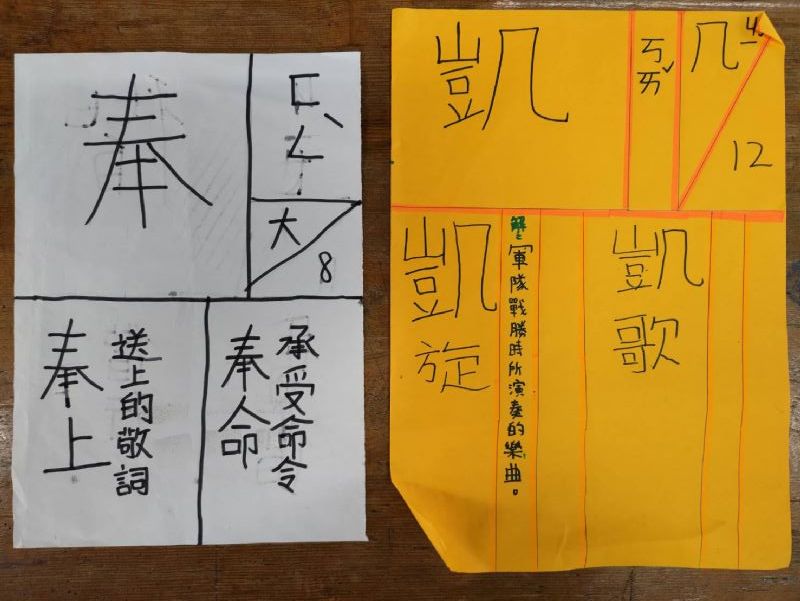 奉
ㄈㄥˋ
大
8
奉命
承受命令
奉上
送上的敬詞
凱
ㄎㄞˇ
几
4.
12
凱歌
解:軍隊戰勝時所演奏的樂曲。
凱旋